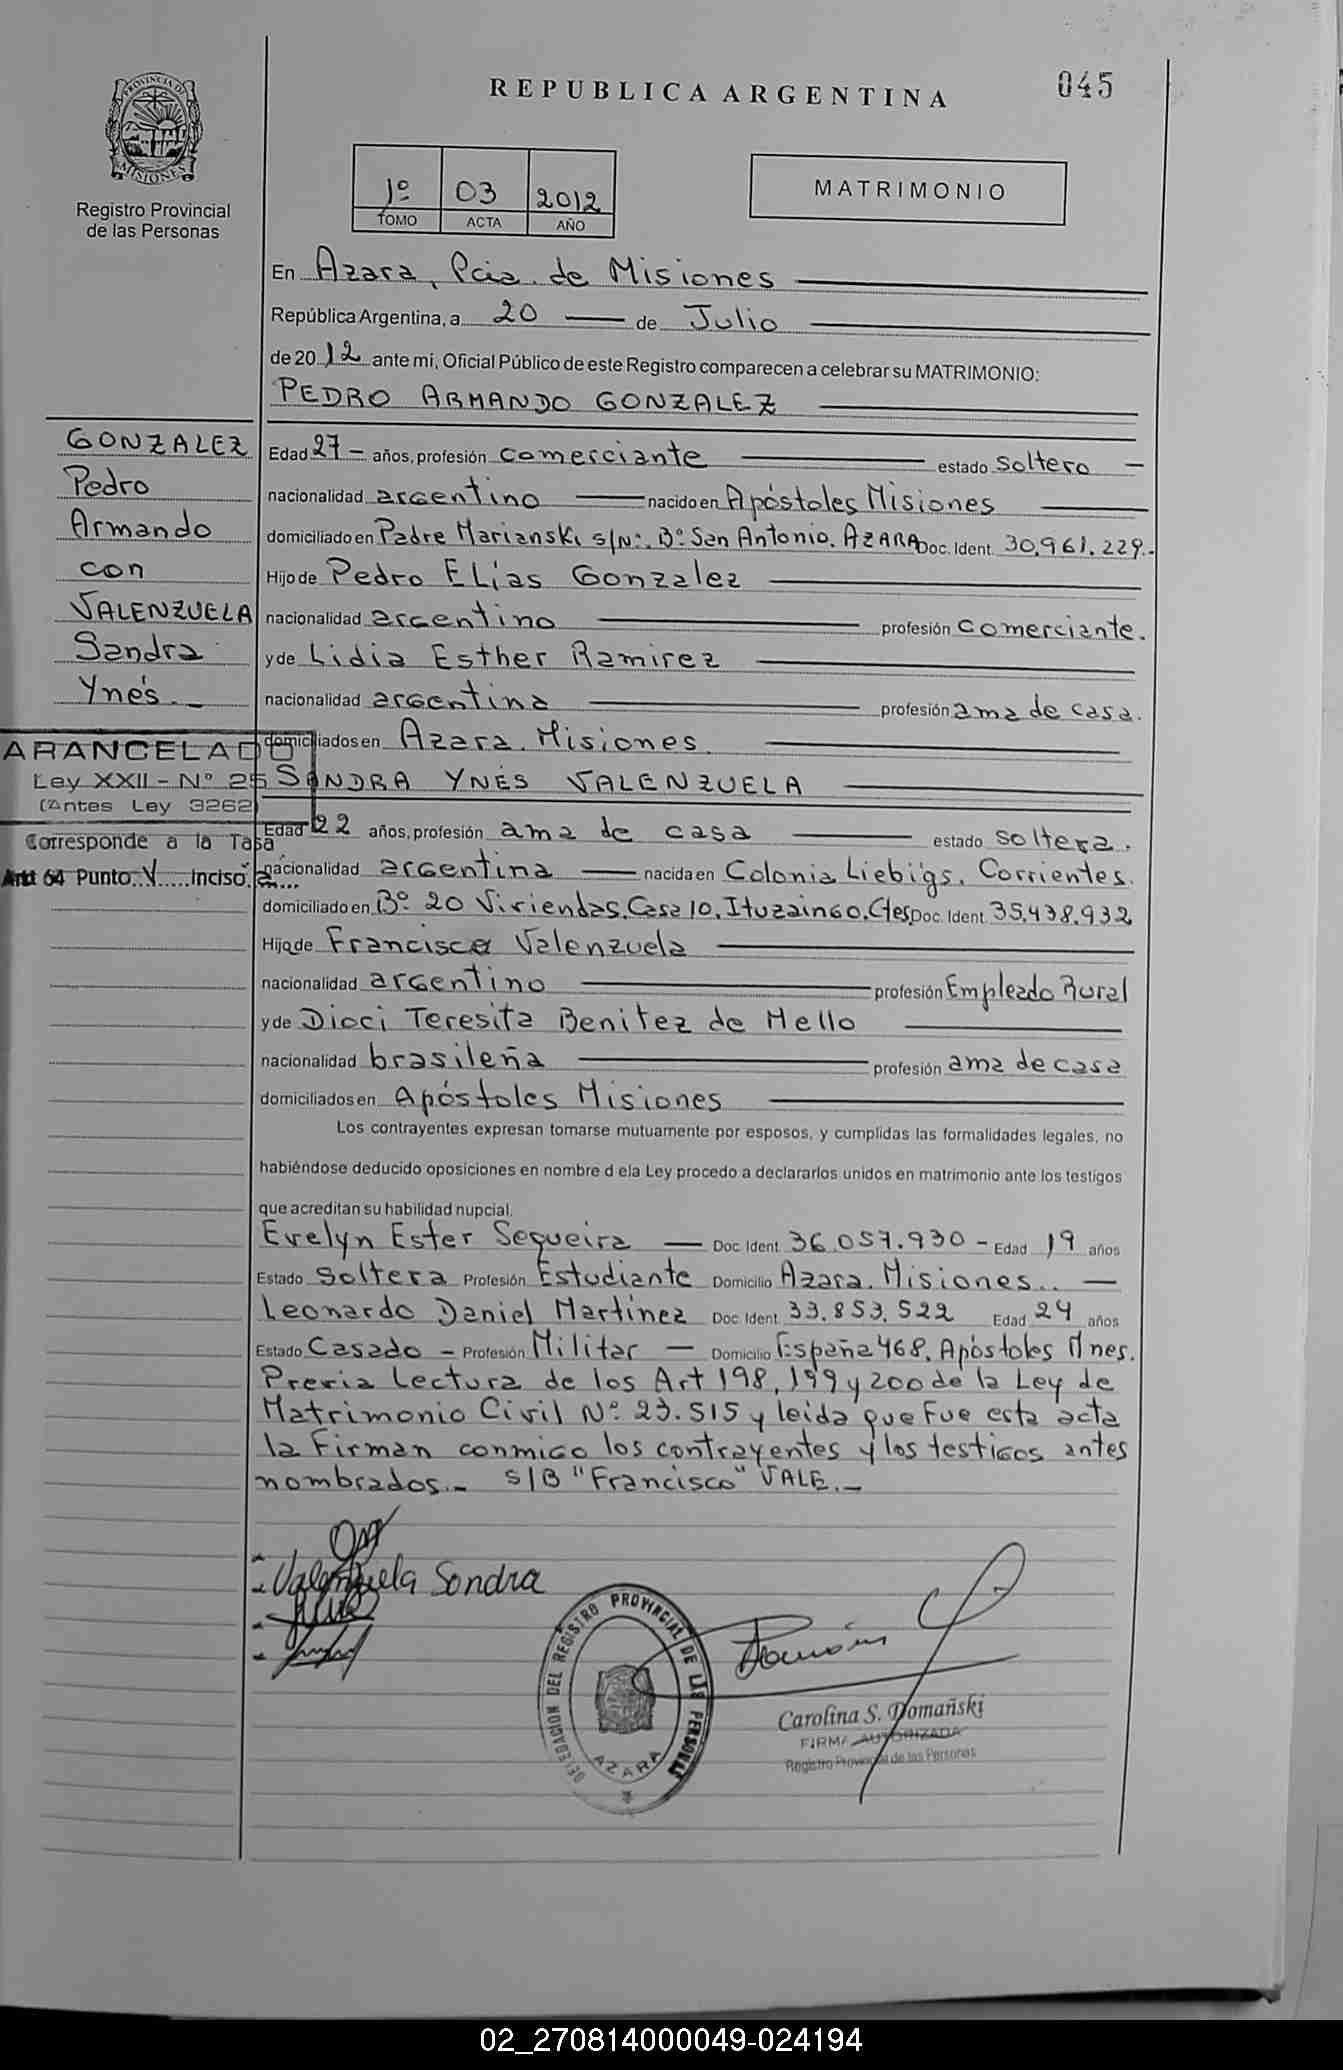 REPUBLICA ARGENTINA
045
PROVINCIA DE
MISIONES
Registro Provincial
de las Personas
1º 03 2012
TOMO ACTA AÑO
MATRIMONIO
En Azara, Pcia. de Misiones
República Argentina, a 20 de Julio
de 2012 ante mí, Oficial Público de este Registro comparecen a celebrar su MATRIMONIO:
PEDRO ARMANDO GONZALEZ
GONZALEZ
Pedro
Armando
con
VALENZUELA
Sandra
Ynés.-
Edad 27 - años, profesión comerciante estado soltero -
nacionalidad argentino nacido en Apóstoles Misiones
domiciliado en Padre Marianski s/Nº. Bº San Antonio. AZARA Doc. Ident. 30,961.229.-
Hijo de Pedro ELias Gonzalez
nacionalidad argentino profesión comerciante.
y de Lidia Esther Ramirez
nacionalidad argentina profesión ama de casa.
domiciliados en Azara. Misiones.
ARANCELADO
Ley XXII - Nº 25
(Antes Ley 3262)
Corresponde a la Tasa
Art 64 Punto V inciso a
SANDRA YNÉS VALENZUELA
Edad 22 años, profesión ama de casa estado soltera.
nacionalidad argentina nacida en Colonia Liebigs. Corrientes.
domiciliado en Bº 20 Viviendas. Casa 10. Ituzaingo. Ctes Doc. Ident. 35,438.932
Hija de Francisca Valenzuela
nacionalidad argentino profesión Empleado Rural
y de Dioci Teresita Benitez de Mello
nacionalidad brasileña profesión ama de casa
domiciliados en Apóstoles Misiones
Los contrayentes expresan tomarse mutuamente por esposos, y cumplidas las formalidades legales, no
habiéndose deducido oposiciones en nombre d ela Ley procedo a declararlos unidos en matrimonio ante los testigos
que acreditan su habilidad nupcial.
Evelyn Ester Sequeira Doc Ident. 36.057.930 - Edad 19 años
Estado Soltera Profesión Estudiante Domicilio Azara. Misiones..
Leonardo Daniel Martinez Doc Ident. 33.853.522 Edad 24 años
Estado Casado - Profesión Militar Domicilio España 468. Apóstoles Mnes.
Previa Lectura de los Art 198, 199 y 200 de la Ley de
Matrimonio Civil Nº 23.515 y leida que fue esta acta
la Firman conmigo los contrayentes y los testigos antes
nombrados.- S/B "Francisco" VALE.-
Valenzuela Sandra
DELEGACION DEL REGISTRO PROVINCIAL DE LAS PERSONAS
AZARA
Carolina S. Domañski
FIRMA AUTORIZADA
Registro Provincial de las Personas
02_270814000049-024194